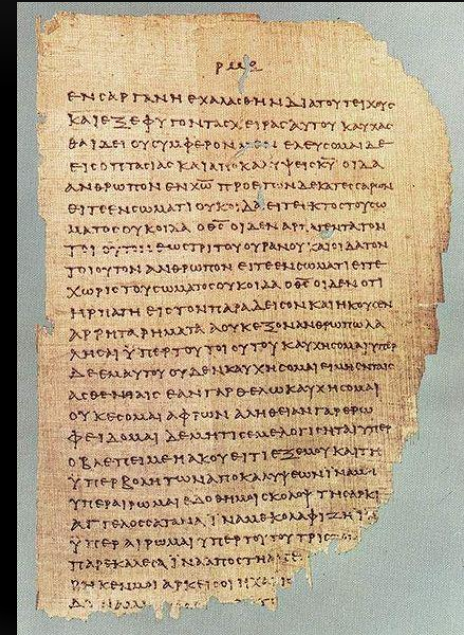 ΕΝ ΣΑΡΓΑΝΗ ΕΧΑΛΑΣΘΗΝ ΔΙΑ ΤΟΥ ΤΕΙΧΟΥΣ
ΚΑΙ ΕΞΕΦΥΓΟΝ ΤΑΣ ΧΕΙΡΑΣ ΑΥΤΟΥ ΚΑΥΧΑΣ
ΘΑΙ ΔΕΙ ΟΥ ΣΥΜΦΕΡΟΝ ΜΕΝ ΕΛΕΥΣΟΜΑΙ ΔΕ
ΕΙΣ ΟΠΤΑΣΙΑΣ ΚΑΙ ΑΠΟΚΑΛΥΨΕΙΣ ΚΥ ΟΙΔΑ
ΑΝΘΡΩΠΟΝ ΕΝ ΧΩ ΠΡΟ ΕΤΩΝ ΔΕΚΑΤΕΣΣΑΡΩΝ
ΕΙΤΕ ΕΝ ΣΩΜΑΤΙ ΟΥΚ ΟΙΔΑ ΕΙΤΕ ΕΚΤΟΣ ΤΟΥ ΣΩ
ΜΑΤΟΣ ΟΥΚ ΟΙΔΑ Ο ΘΣ ΟΙΔΕΝ ΑΡΠΑΓΕΝΤΑ ΤΟΝ
ΤΟΙΟΥΤΟΝ ΕΩΣ ΤΡΙΤΟΥ ΟΥΡΑΝΟΥ ΚΑΙ ΟΙΔΑ ΤΟΝ
ΤΟΙΟΥΤΟΝ ΑΝΘΡΩΠΟΝ ΕΙΤΕ ΕΝ ΣΩΜΑΤΙ ΕΙΤΕ
ΧΩΡΙΣ ΤΟΥ ΣΩΜΑΤΟΣ ΟΥΚ ΟΙΔΑ Ο ΘΣ ΟΙΔΕΝ ΟΤΙ
ΗΡΠΑΓΗ ΕΙΣ ΤΟΝ ΠΑΡΑΔΕΙΣΟΝ ΚΑΙ ΗΚΟΥΣΕΝ
ΑΡΡΗΤΑ ΡΗΜΑΤΑ Α ΟΥΚ ΕΞΟΝ ΑΝΘΡΩΠΩ ΛΑ
ΛΗΣΑΙ ΥΠΕΡ ΤΟΥ ΤΟΙΟΥΤΟΥ ΚΑΥΧΗΣΟΜΑΙ ΥΠΕΡ
ΔΕ ΕΜΑΥΤΟΥ ΟΥΔΕΝ ΚΑΥΧΗΣΟΜΑΙ ΕΙ ΜΗ ΕΝ ΤΑΙΣ
ΑΣΘΕΝΕΙΑΙΣ ΕΑΝ ΓΑΡ ΘΕΛΩ ΚΑΥΧΗΣΟΜΑΙ
ΟΥΚ ΕΣΟΜΑΙ ΑΦΡΩΝ ΑΛΗΘΕΙΑΝ ΓΑΡ ΕΡΩ
ΦΕΙΔΟΜΑΙ ΔΕ ΜΗ ΤΙΣ ΕΜΕ ΛΟΓΙΣΗΤΑΙ ΥΠΕΡ
Ο ΒΛΕΠΕΙ ΜΕ Η ΑΚΟΥΕΙ ΤΙ ΕΞ ΕΜΟΥ ΚΑΙ ΤΗ
ΥΠΕΡΒΟΛΗ ΤΩΝ ΑΠΟΚΑΛΥΨΕΩΝ ΙΝΑ ΜΗ
ΥΠΕΡΑΙΡΩΜΑΙ ΕΔΟΘΗ ΜΟΙ ΣΚΟΛΟΨ ΤΗ ΣΑΡΚΙ
ΑΓΓΕΛΟΣ ΣΑΤΑΝΑ ΙΝΑ ΜΕ ΚΟΛΑΦΙΖΗ
ΥΠΕΡΑΙΡΩΜΑΙ ΥΠΕΡ ΤΟΥΤΟΥ ΤΡΙΣ
ΠΑΡΕΚΑΛΕΣΑ ΙΝΑ ΑΠΟΣΤΗ
ΚΕΝ ΜΟΙ ΑΡΚΕΙ ΣΟΙ Η ΧΑΡΙΣ